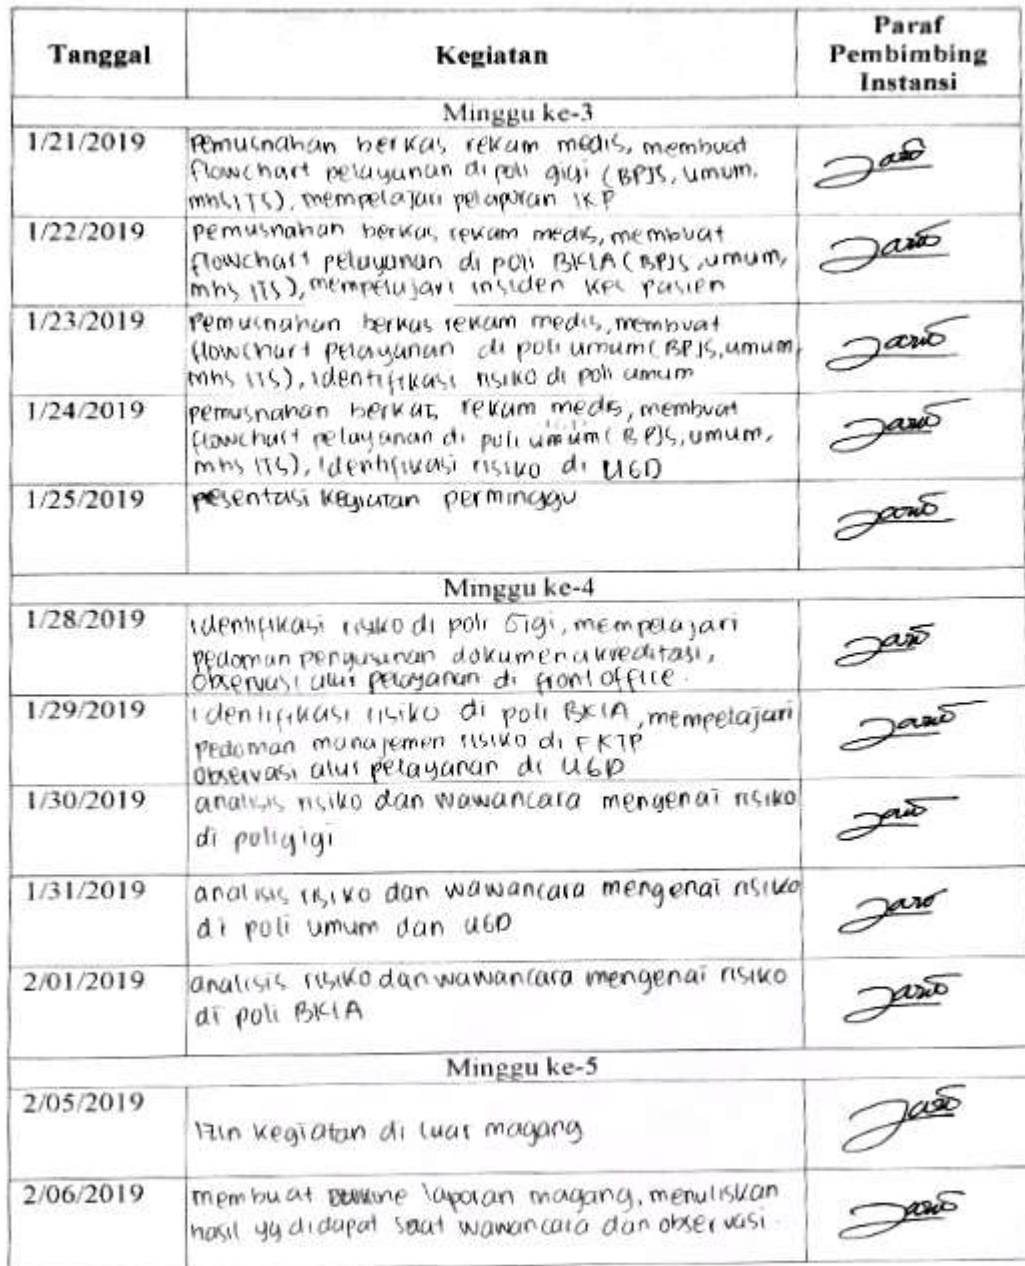 Tanggal Kegiatan Paraf
Pembimbing
Instansi
Minggu ke-3
1/21/2019 Pemusnahan berkas rekam medis, membuat
flowchart pelayanan di poli gigi (BPJS, umum,
mhs ITS), mempelajari pelaporan IKP
1/22/2019 pemusnahan berkas rekam medis, membuat
flowchart pelayanan di poli BKIA (BPJS, umum,
mhs ITS), mempelajari insiden kes pasien
1/23/2019 Pemusnahan berkas rekam medis, membuat
flowchart pelayanan di poli umum (BPJS, umum,
mhs ITS), identifikasi risiko di poli umum
1/24/2019 pemusnahan berkas rekam medis, membuat
flowchart pelayanan di poli umum (BPJS, umum,
mhs ITS), identifikasi risiko di UGD
1/25/2019 pesentasi kegiatan perminggu
Minggu ke-4
1/28/2019 identifikasi risiko di poli Gigi, mempelajari
pedoman penyusunan dokumen akreditasi,
observasi alur pelayanan di front office.
1/29/2019 identifikasi risiko di poli BKIA, mempelajari
pedoman manajemen risiko di FKTP
observasi alur pelayanan di UGD
1/30/2019 analisis risiko dan wawancara mengenai risiko
di poli gigi
1/31/2019 analisis risiko dan wawancara mengenai risiko
di poli umum dan UGD
2/01/2019 analisis risiko dan wawancara mengenai risiko
di poli BKIA
Minggu ke-5
2/05/2019 izin kegiatan di luar magang
2/06/2019 membuat laporan magang, menuliskan
hasil yg didapat saat wawancara dan observasi.